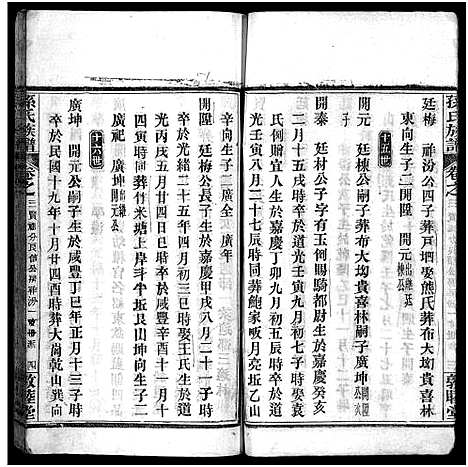 孫氏族譜
卷之三
敦睦堂
廷梅　祥汾公四子葬戸堷娶熊氏葬布大坳貴喜林
東向生子二開陞　開元出繼廷棟公
十五世
開元　廷棟公嗣子葬布大坳貴喜林嗣子廣坤
開泰　廷材公子字有玉例賜騎都尉生於嘉慶癸亥
九月初七日辰時歿於道光壬寅九月初三日子時娶袁
氏例贈宜人生於嘉慶丁卯九月初三日戌時歿於道
光壬寅八月二十七辰時同葬鮑家畈月亮坵乙山
辛向生子二廣全　廣年
開陞　廷梅公長子生於嘉慶甲戌八月二十一子時
卒於光緒五年四月初三巳時娶王氏生於道
光丙戌五月二十五戌時卒於咸豐辛酉十一月十
四寅時同葬竹米塘上岸斗半坵艮山坤向生子二
廣祀　廣坤出繼開元公
十六世
廣坤　開元公嗣子生於咸豐丁巳年正月十三子時
卒於民國十九年十月廿四酉時葬大崗乾山巽向